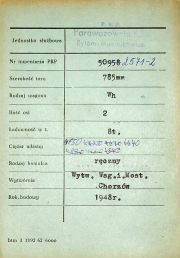 P. K. P.
Jednostka służbowa
Parowozow
Nr inwentarza PKP 50958 2571-2
Szerokość toru 785mm
Rodzaj wagonu Wh
Ilość osi 2
Ładowność w t. 8t.
Ciężar własny
Rodzaj hamulca ręczny
Wytwórnia Wytw. Wag.i.Most.
Chorzów
Rok budowy 1948r.